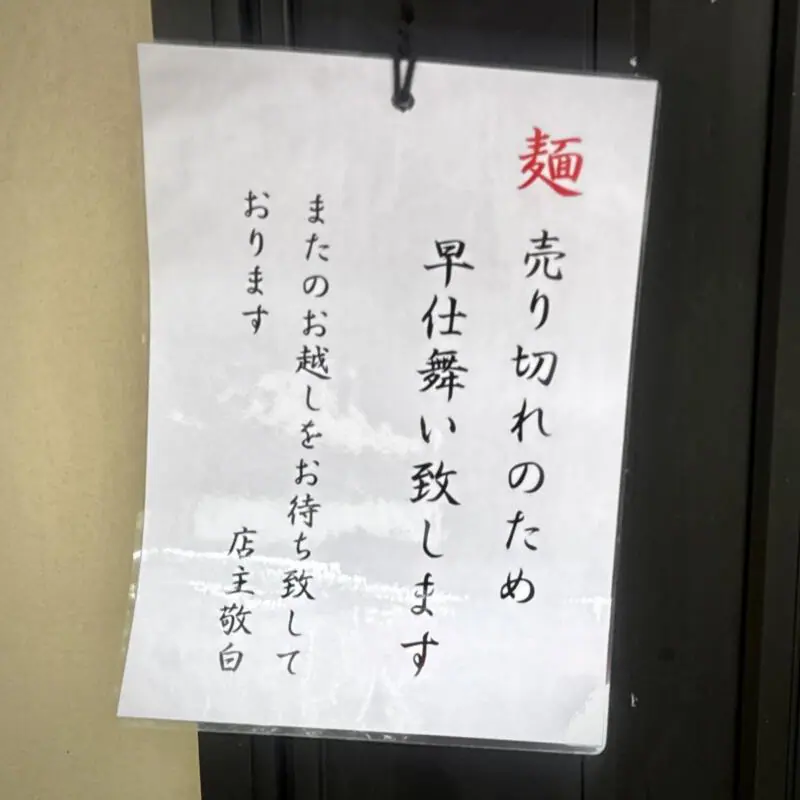 麺売り切れのため
早仕舞い致します
またのお越しをお待ち致して
おります
店主敬白